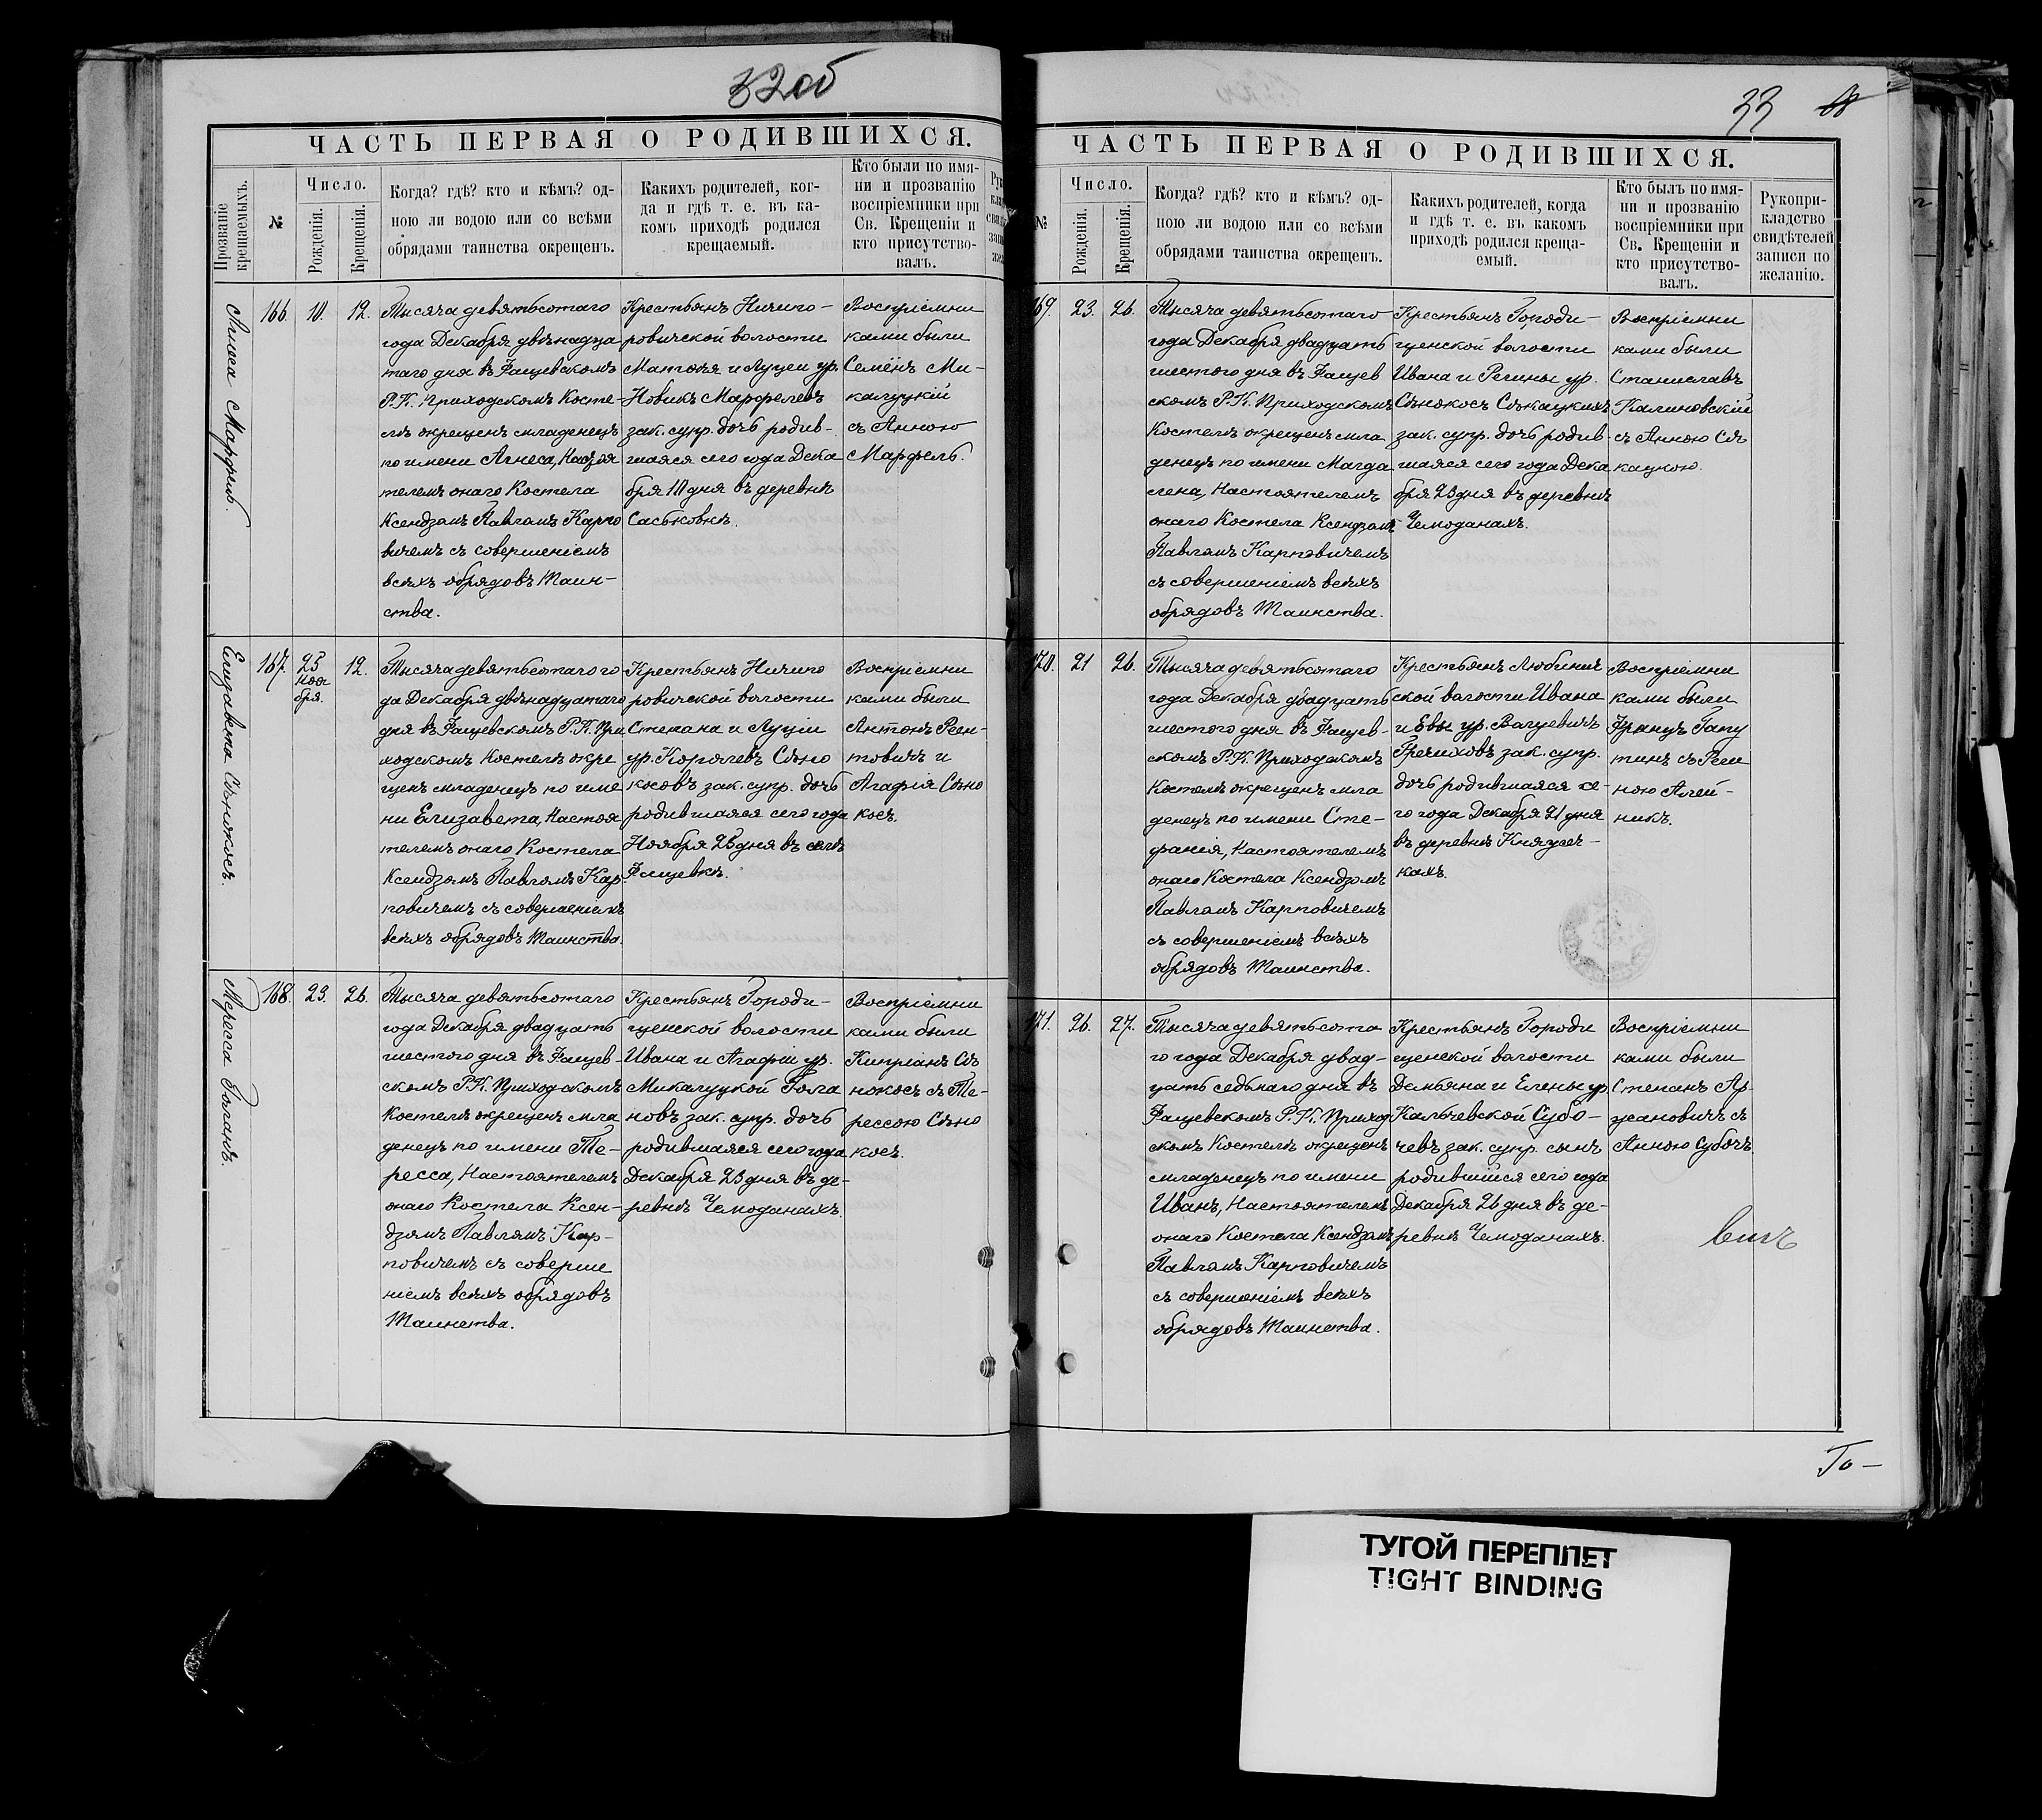 32об
ЧАСТЬ ПЕРВАЯ О РОДИВШИХСЯ.
Прозваніе крещаемыхъ.
№
Число.
Рожденія.
Крещенія.
Когда? гдѣ? кто и кѣмъ? од-
ною ли водою или со всѣми
обрядами таинства окрещенъ.
Какихъ родителей, ког-
да и гдѣ т. е. въ ка-
комъ приходѣ родился
крещаемый.
Кто были по имя-
ни и прозванію
воспріемники при
Св. Крещеніи и
кто присутство-
валъ.
Агнеса Марфель.
166
10.
12.
Тысяча девятьсотаго
года Декабря двѣнадца
таго дня въ Фащевскомъ
Р.К. Приходскомъ Косте-
лѣ окрещенъ младенецъ
по имени Агнеса, Настоя
телемъ онаго Костела
Ксендзомъ Павломъ Карпо
вичемъ съ совершеніемъ
всѣхъ обрядовъ Таин-
ства.
Крестьянъ Ничипо-
ровичской волости
Матвѣя и Луцеи ур.
Новикъ Марфелевъ
зак. супр. дочь родив-
шаяся сего года Дека
бря 10 дня въ деревнѣ
Саськовкѣ.
Воспріемни
ками были
Семёнъ Ми-
калуцкій
съ Анною
Марфель.
Елизавета Сѣнокосъ.
167.
25
Ноя
бря.
12.
Тысяча девятьсотаго го
да Декабря двѣнадцатаго
дня въ Фащевскомъ Р.К. При
ходскомъ Костелѣ окре
щенъ младенецъ по име
ни Елизавета, Настоя
телемъ онаго Костела
Ксендзомъ Павломъ Кар-
повичемъ съ совершеніемъ
всѣхъ обрядовъ Таинства.
Крестьянъ Ничипо
ровичской волости
Степана и Луціи
ур. Королевъ Сѣно
косовъ зак. супр. дочь
родившаяся сего года
Ноября 25 дня въ селѣ
Фащевкѣ.
Воспріемни
ками были
Антонъ Рен-
товичъ и
Агафія Сѣно
косъ.
Тересса Голанъ.
168.
23.
26.
Тысяча девятьсотаго
года Декабря двадцать
шестого дня въ Фащев-
скомъ Р.К. Приходскомъ
Костелѣ окрещенъ мла
денецъ по имени Те-
ресса, Настоятелемъ
онаго Костела Ксен-
дзомъ Павломъ Кар-
повичемъ съ соверше
ніемъ всѣхъ обрядовъ
Таинства.
Крестьянъ Городи-
щенской волости
Ивана и Агафіи ур.
Микалуцкой Гола
новъ зак. супр. дочь
родившаяся сего года
Декабря 23 дня въ де-
ревнѣ Чемоданахъ.
Воспріемни
ками были
Кипріанъ Сѣ
нокосъ съ Те-
рессою Сѣно
косъ.
33
ЧАСТЬ ПЕРВАЯ О РОДИВШИХСЯ.
№
Число.
Рожденія.
Крещенія.
Когда? гдѣ? кто и кѣмъ? од-
ною ли водою или со всѣми
обрядами таинства окрещенъ.
Какихъ родителей, когда
и гдѣ т. е. въ какомъ
приходѣ родился креща-
емый.
Кто былъ по имя-
ни и прозванію
воспріемники при
Св. Крещеніи и
кто присутство-
валъ.
Рукопри-
кладство
свидѣтелей
записи по
желанію.
169.
23.
26.
Тысяча девятьсотаго
года Декабря двадцать
шестого дня въ Фащев
скомъ Р.К. Приходскомъ
Костелѣ окрещенъ мла
денецъ по имени Магда
лена, Настоятелемъ
онаго Костела Ксендзомъ
Павломъ Карповичемъ
съ совершеніемъ всѣхъ
обрядовъ Таинства.
Крестьянъ Городи-
щенской волости
Ивана и Регины ур.
Сѣнокосъ Сѣкацкихъ
зак. супр. дочь родив-
шаяся сего года Дека
бря 23 дня въ деревнѣ
Чемоданахъ.
Воспріемни
ками были
Станиславъ
Калиновскій
съ Анною Сѣ
кацкою.
170.
21
26.
Тысяча девятьсотаго
года Декабря двадцать
шестого дня въ Фащев-
скомъ Р.К. Приходскомъ
Костелѣ окрещенъ мла
денецъ по имени Сте-
фанія, Настоятелемъ
онаго Костела Ксендзомъ
Павломъ Карповичемъ
съ совершеніемъ всѣхъ
обрядовъ Таинства.
Крестьянъ Любинич
ской волости Ивана
и Евы ур. Вагуевичъ
Гречиховъ зак. супр.
дочь родившаяся се-
го года Декабря 21 дня
въ деревнѣ Княжец-
кахъ.
Воспріемни
ками были
Францъ Гапу
тинъ съ Реги
ною Алей-
никъ.
171.
26.
27.
Тысяча девятьсота
го года Декабря двад-
цать седьмаго дня въ
Фащевскомъ Р.К. Приход
скомъ Костелѣ окрещенъ
младенецъ по имени
Иванъ, Настоятелемъ
онаго Костела Ксендзомъ
Павломъ Карповичемъ
съ совершеніемъ всѣхъ
обрядовъ Таинства.
Крестьянъ Городи
щенской волости
Демьяна и Елены ур.
Кальчевской Субо-
чевъ зак. супр. сынъ
родившійся сего года
Декабря 26 дня въ де-
ревнѣ Чемоданахъ.
Воспріемни
ками были
Степанъ Ар-
цсановичъ съ
Анною Субочъ.
вичъ
Го-
ТУГОЙ ПЕРЕПЛЕТ
TIGHT BINDING